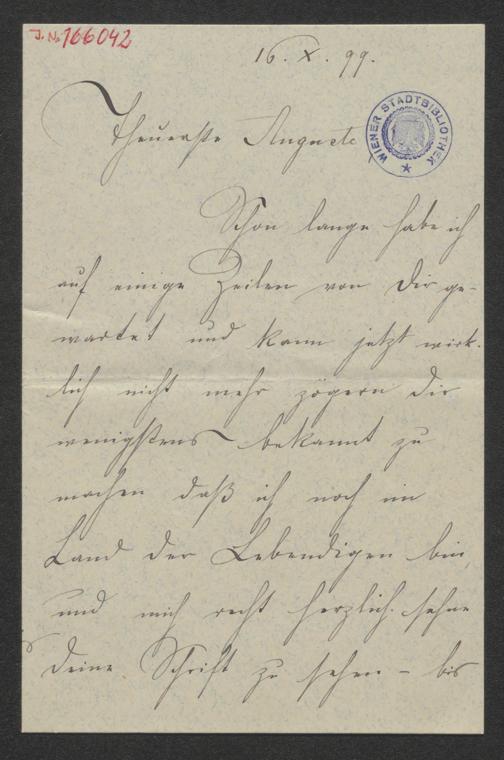 J. No 166042
16. X. 99.
Theuerste Auguste
WIENER STADTBIBLIOTHEK
Schon lange habe ich
auf einige Zeilen von Dir ge-
wartet und kann jetzt wirk-
lich nicht mehr zögern Dir
wenigstens bekannt zu
machen daß ich noch im
Land der Lebendigen bin
und mich recht herzlich sehne
Deine Schrift zu sehen – bis